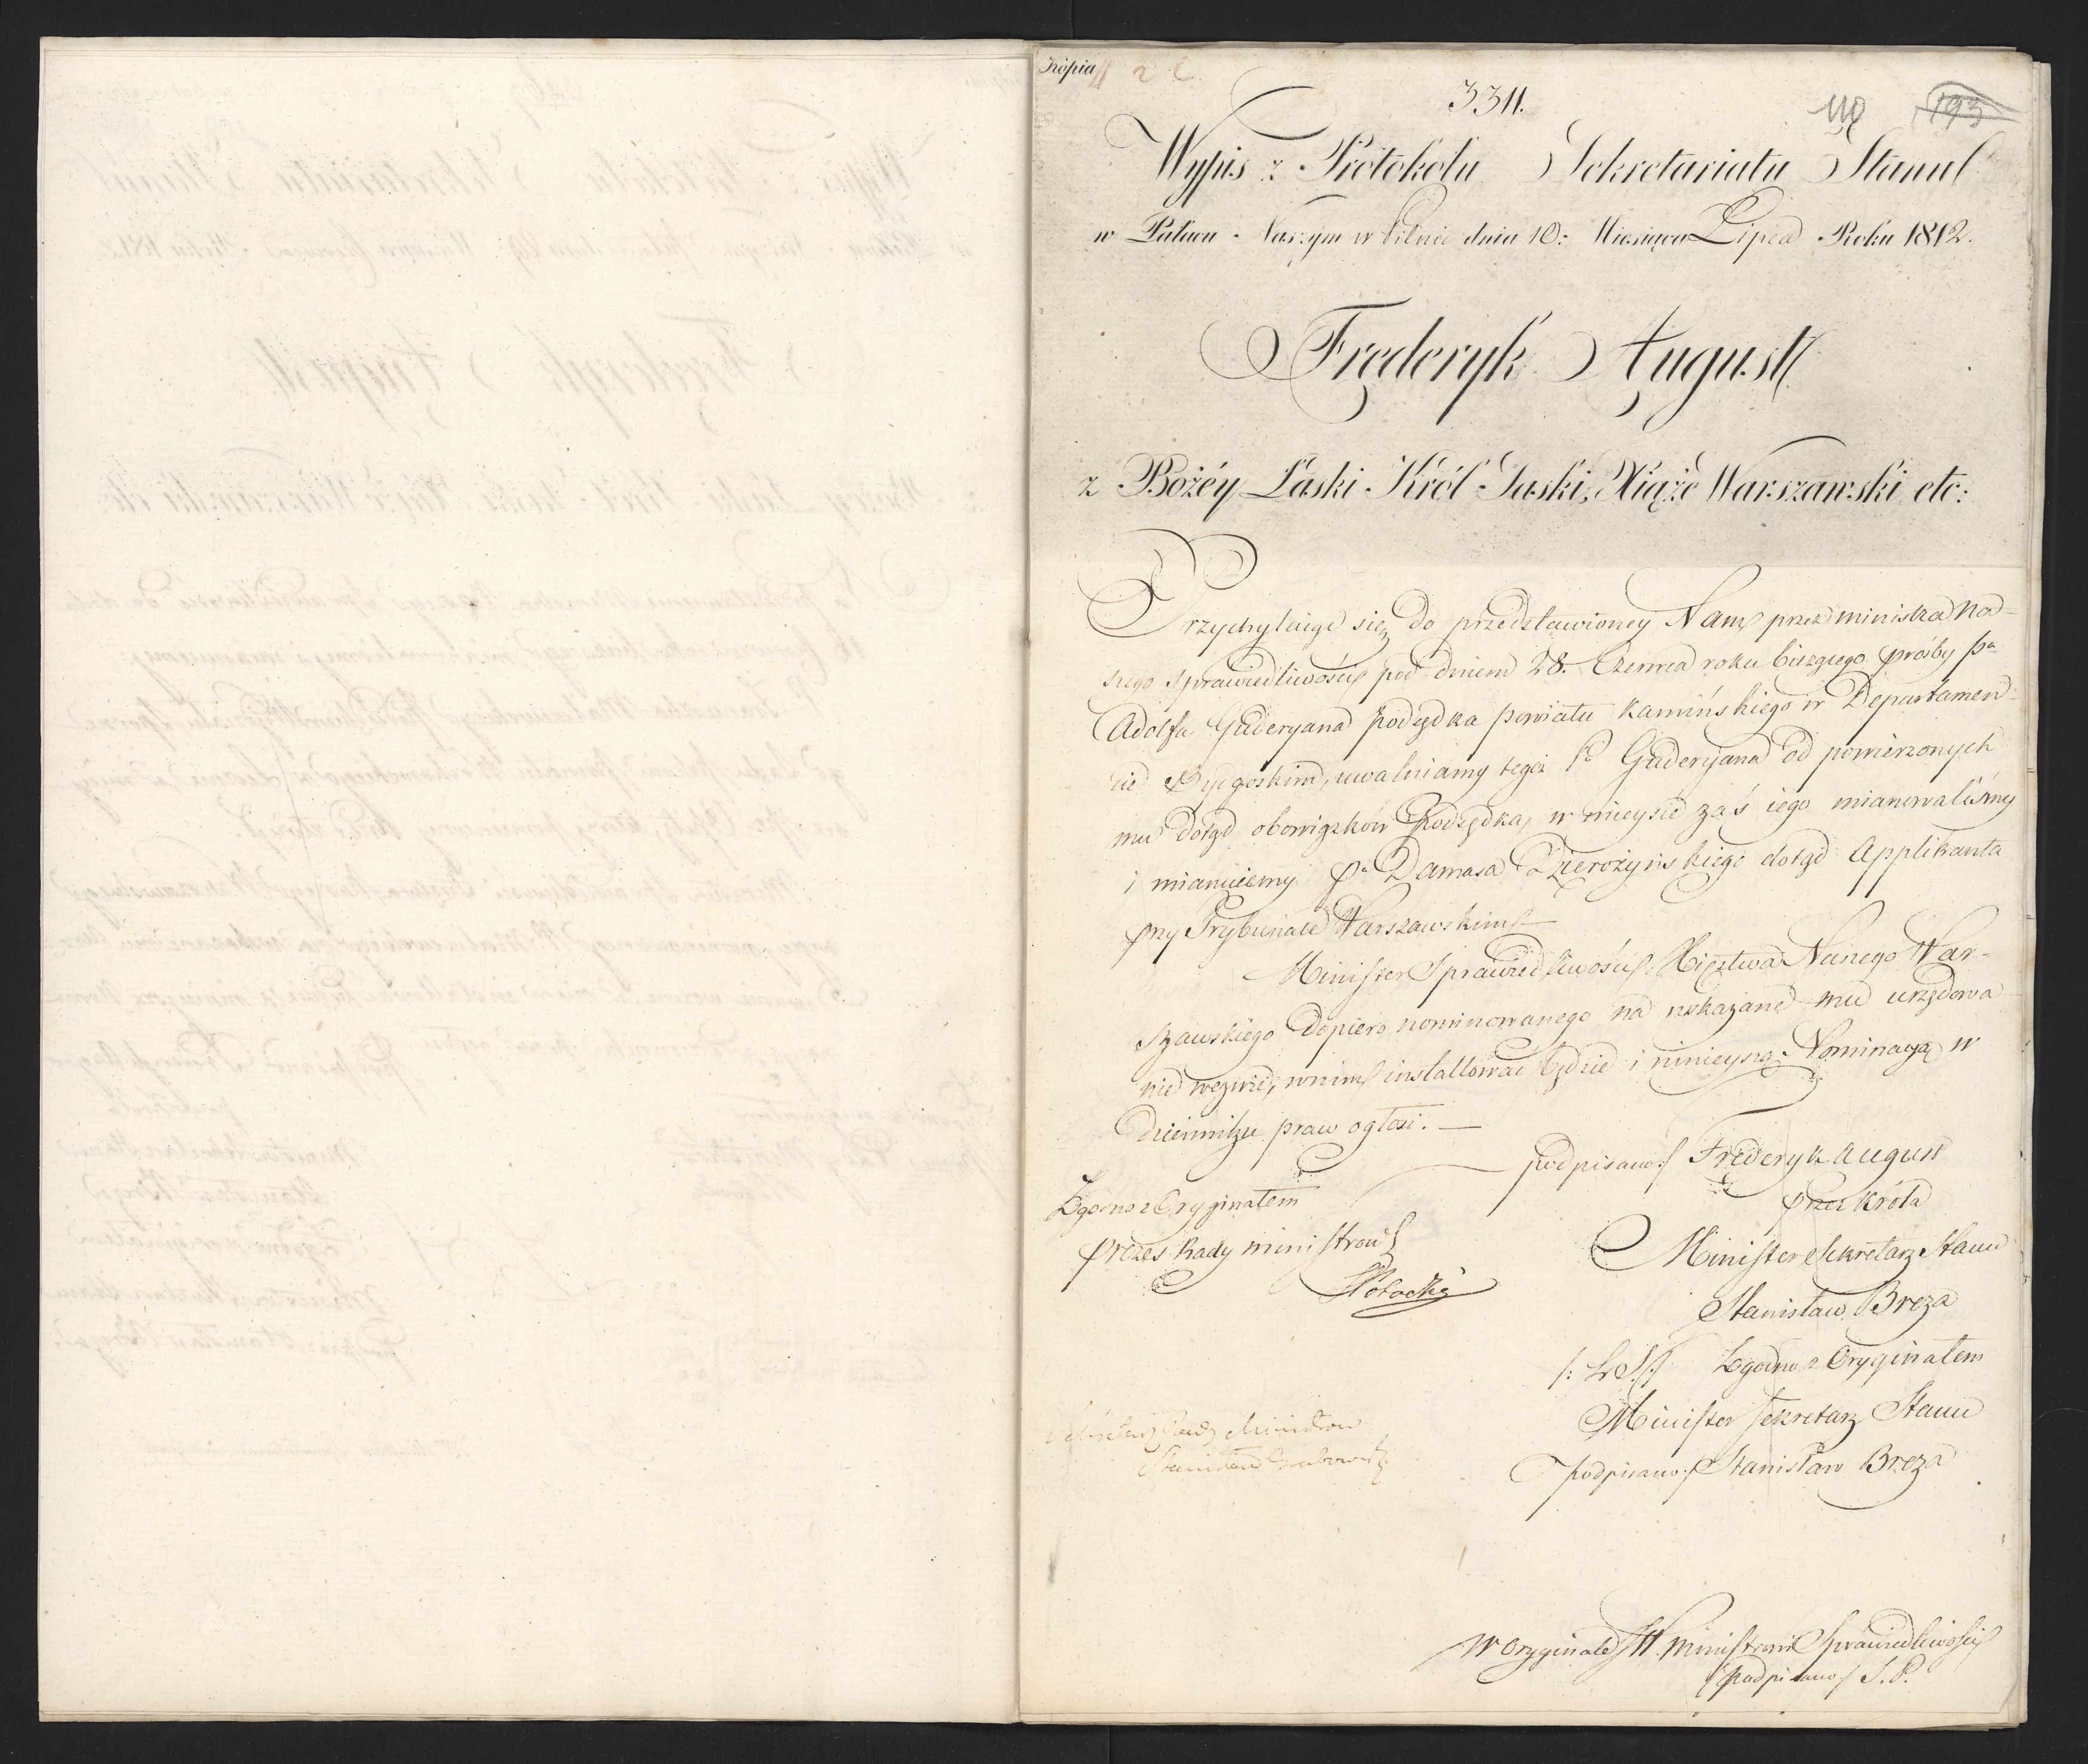 Kopia
3311.
110 193
Wypis z Protokołu Sekretariatu Stanu
w Pałacu Naszym w Pilnic dnia 10: Miesiąca Lipca Roku 1812.
Frederyk August
z Bożéy Łaski Król Saski, Xiąże Warszawski etc:
Przychylaiąc się do przedstawioney Nam przez ministra na-
szego sprawiedliwości pod dniem 28. Czerwca roku bieżącego prośby Pa
Adolfa Guderyana podsędka powiatu Kamińskiego w Departamen-
cie Bydgoskim, uwalniamy tegoż Pa Guderyana od powierzonych
mu dotąd obowiązkow Podsędka, w mieysce zaś iego mianowaliśmy
i mianuiemy Pa Damasa Dzierożyńskiego dotąd Applikanta
przy Trybunale Warszawskim.
Minister Sprawiedliwości Xięstwa Naszego War-
szawskiego dopiero nominowanego na wskazane mu urzędowa
nie wezwie, w nim installować będzie i ninieyszą Nominacyą w
dzienniku praw ogłosi. —
podpisano:/ Frederyk August
Zgodno z Oryginałem
przez Króla
prezes Rady ministrow
Minister Sekretarz Stanu
Potocki
Stanisław Breza
/: L. S. :/ Zgodno z Oryginałem
Minister Sekretarz Stanu
Sekretarz Rady Ministrow
Stanisław Grabowski
podpisano:/ Stanisław Breza
w oryginale JW. Ministrowi Sprawiedliwości
/podpisano/ S. P.